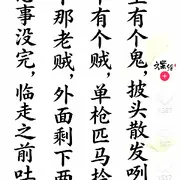 有个鬼，披头散发咧
有个贼，单枪匹马
那老贼，外面剩下
事没完，临走之前吐